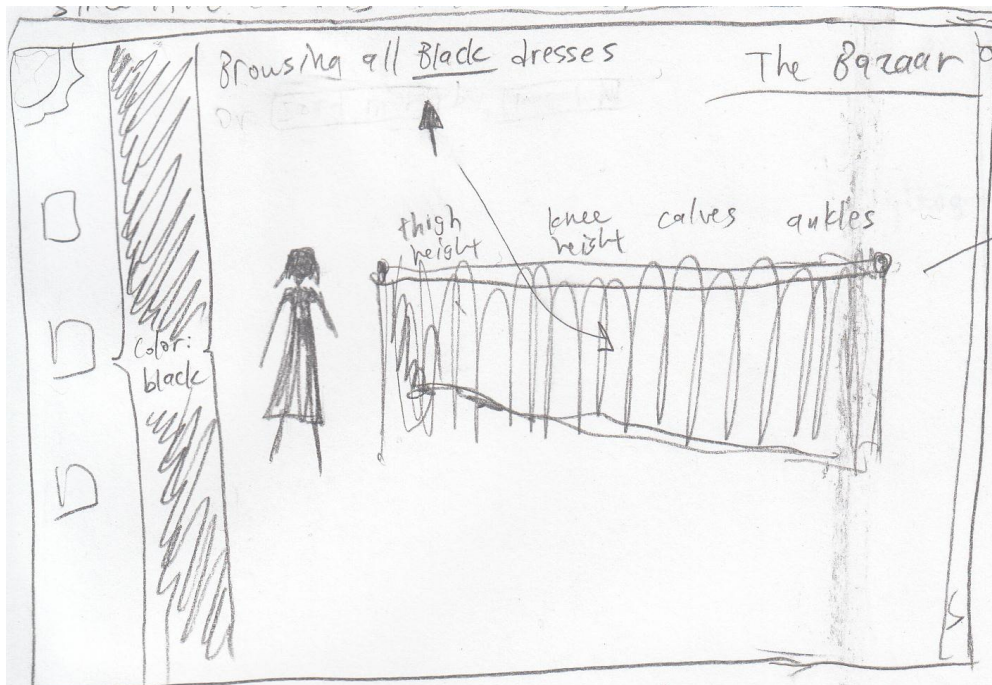 Browsing all Black dresses
The Bazaar
thigh
height
knee
height
calves
ankles
color:
black